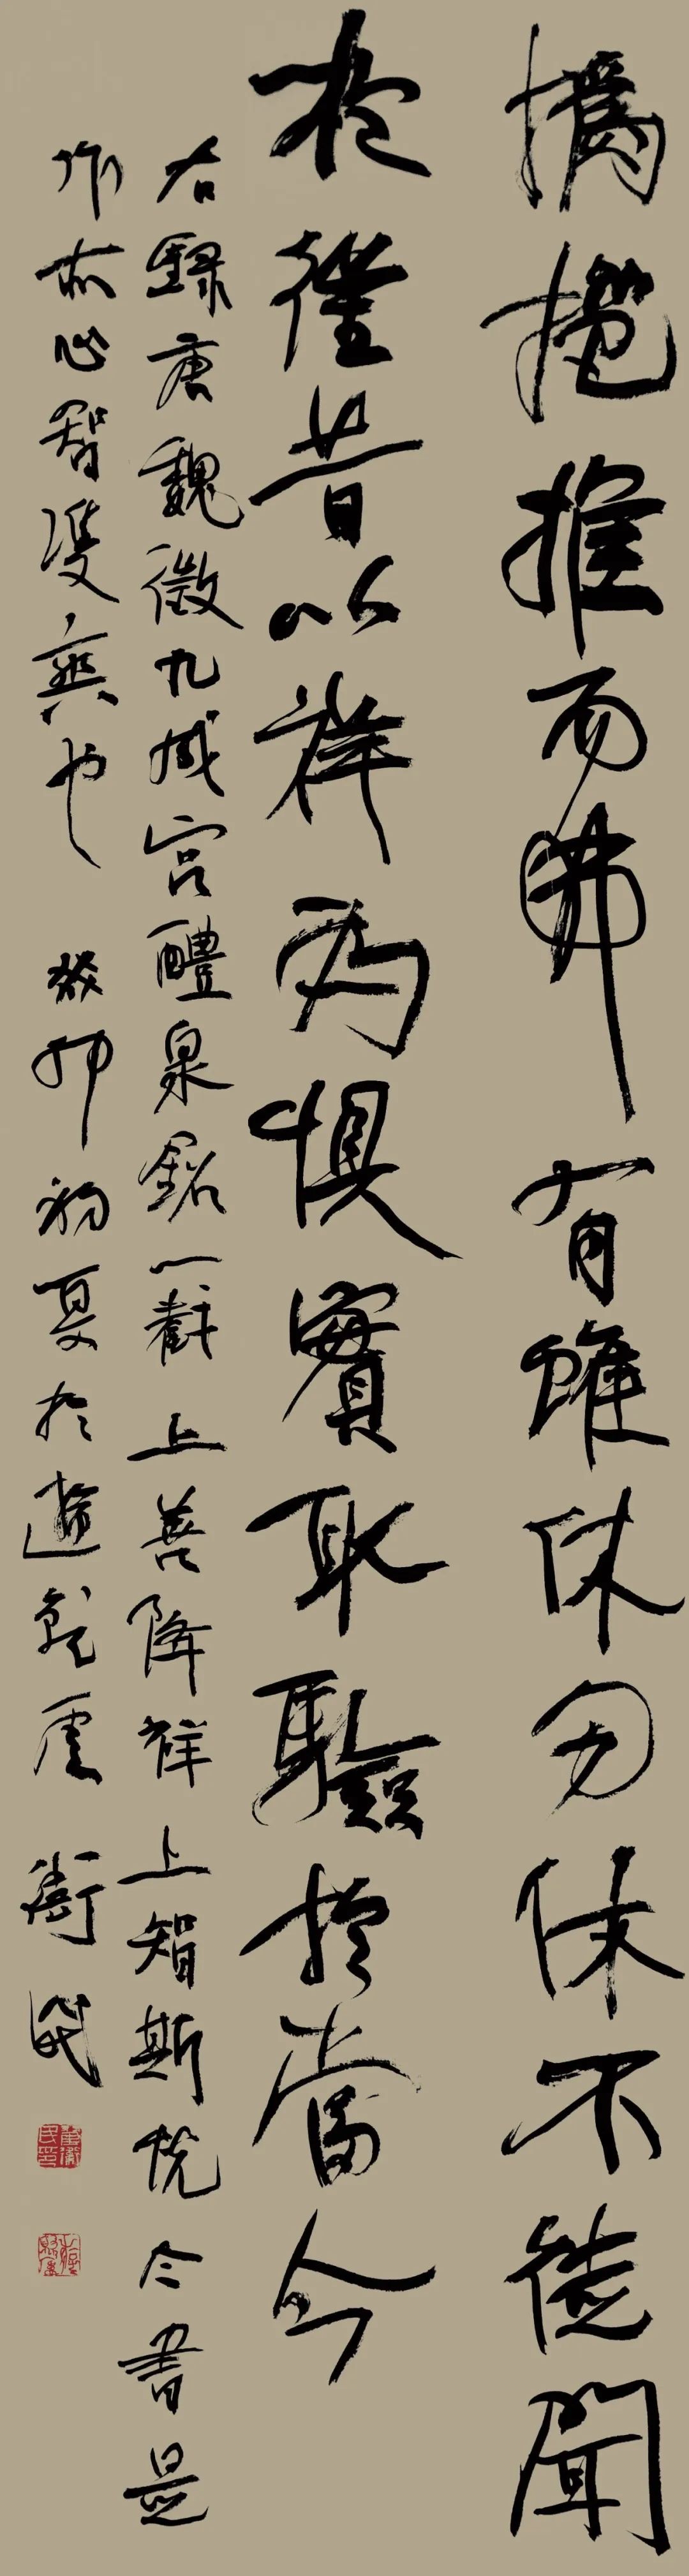 撝挹推而弗有雖休勿休不徒聞
於往昔以祥為懼實取驗於當今
右録唐魏徵九成宮醴泉銘一截上善降祥上智斯悅今書是
作亦心智雙爽也 癸卯初夏於 衛民